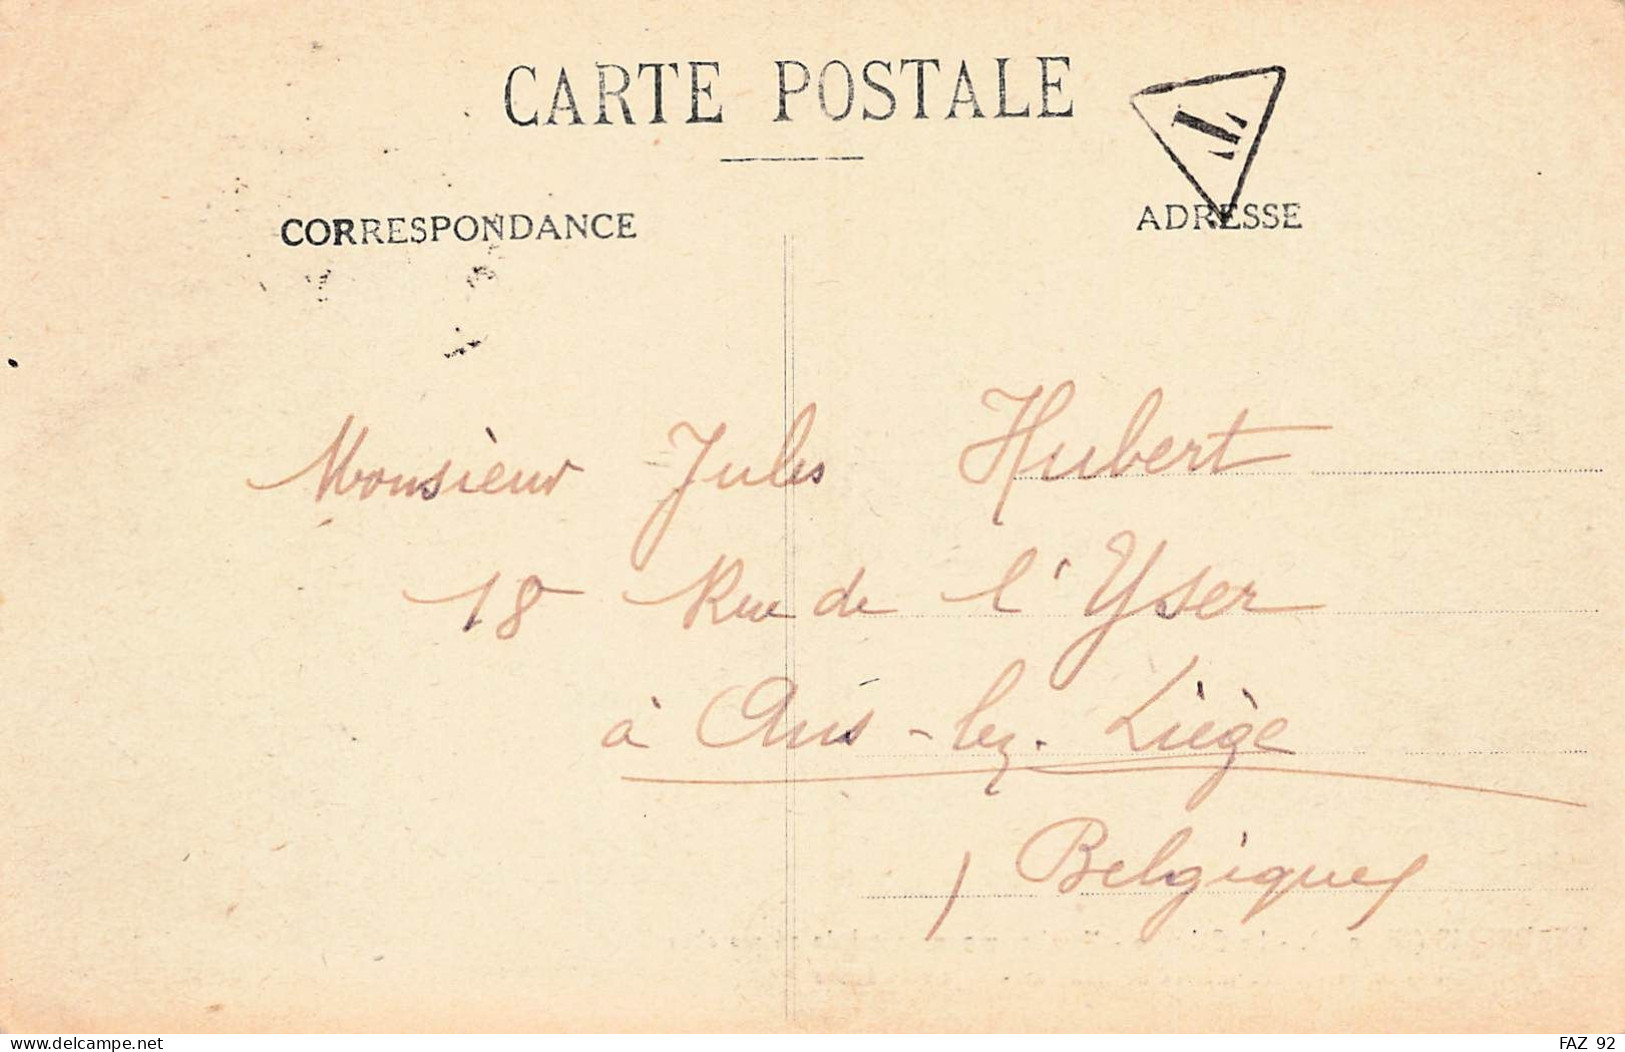 CARTE POSTALE
T
CORRESPONDANCE
ADRESSE
Monsieur Jules Hubert
18 Rue de l'Yser
à Ans-lez-Liège
(Belgique)
www.delcampe.net
FAZ 92